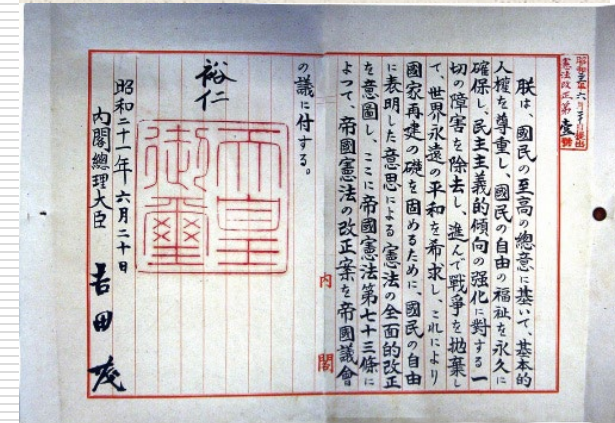 昭和二十一年六月二十日提出
憲法改正第壹號
朕は、國民の至高の總意に基いて、基本的
人權を尊重し、國民の自由の福祉を永久に
確保し、民主主義的傾向の强化に對する一
切の障害を除去し、進んで戰爭を抛棄し
て、世界永遠の平和を希求し、これにより
國家再建の礎を固めるために、國民の自由
に表明した意思による憲法の全面的改正
を意圖し、ここに帝國憲法第七十三條に
よつて、帝國憲法の改正案を帝國議會
の議に付する。
裕仁
天皇
御璽
昭和二十一年六月二十日
內閣總理大臣
吉田茂
內閣